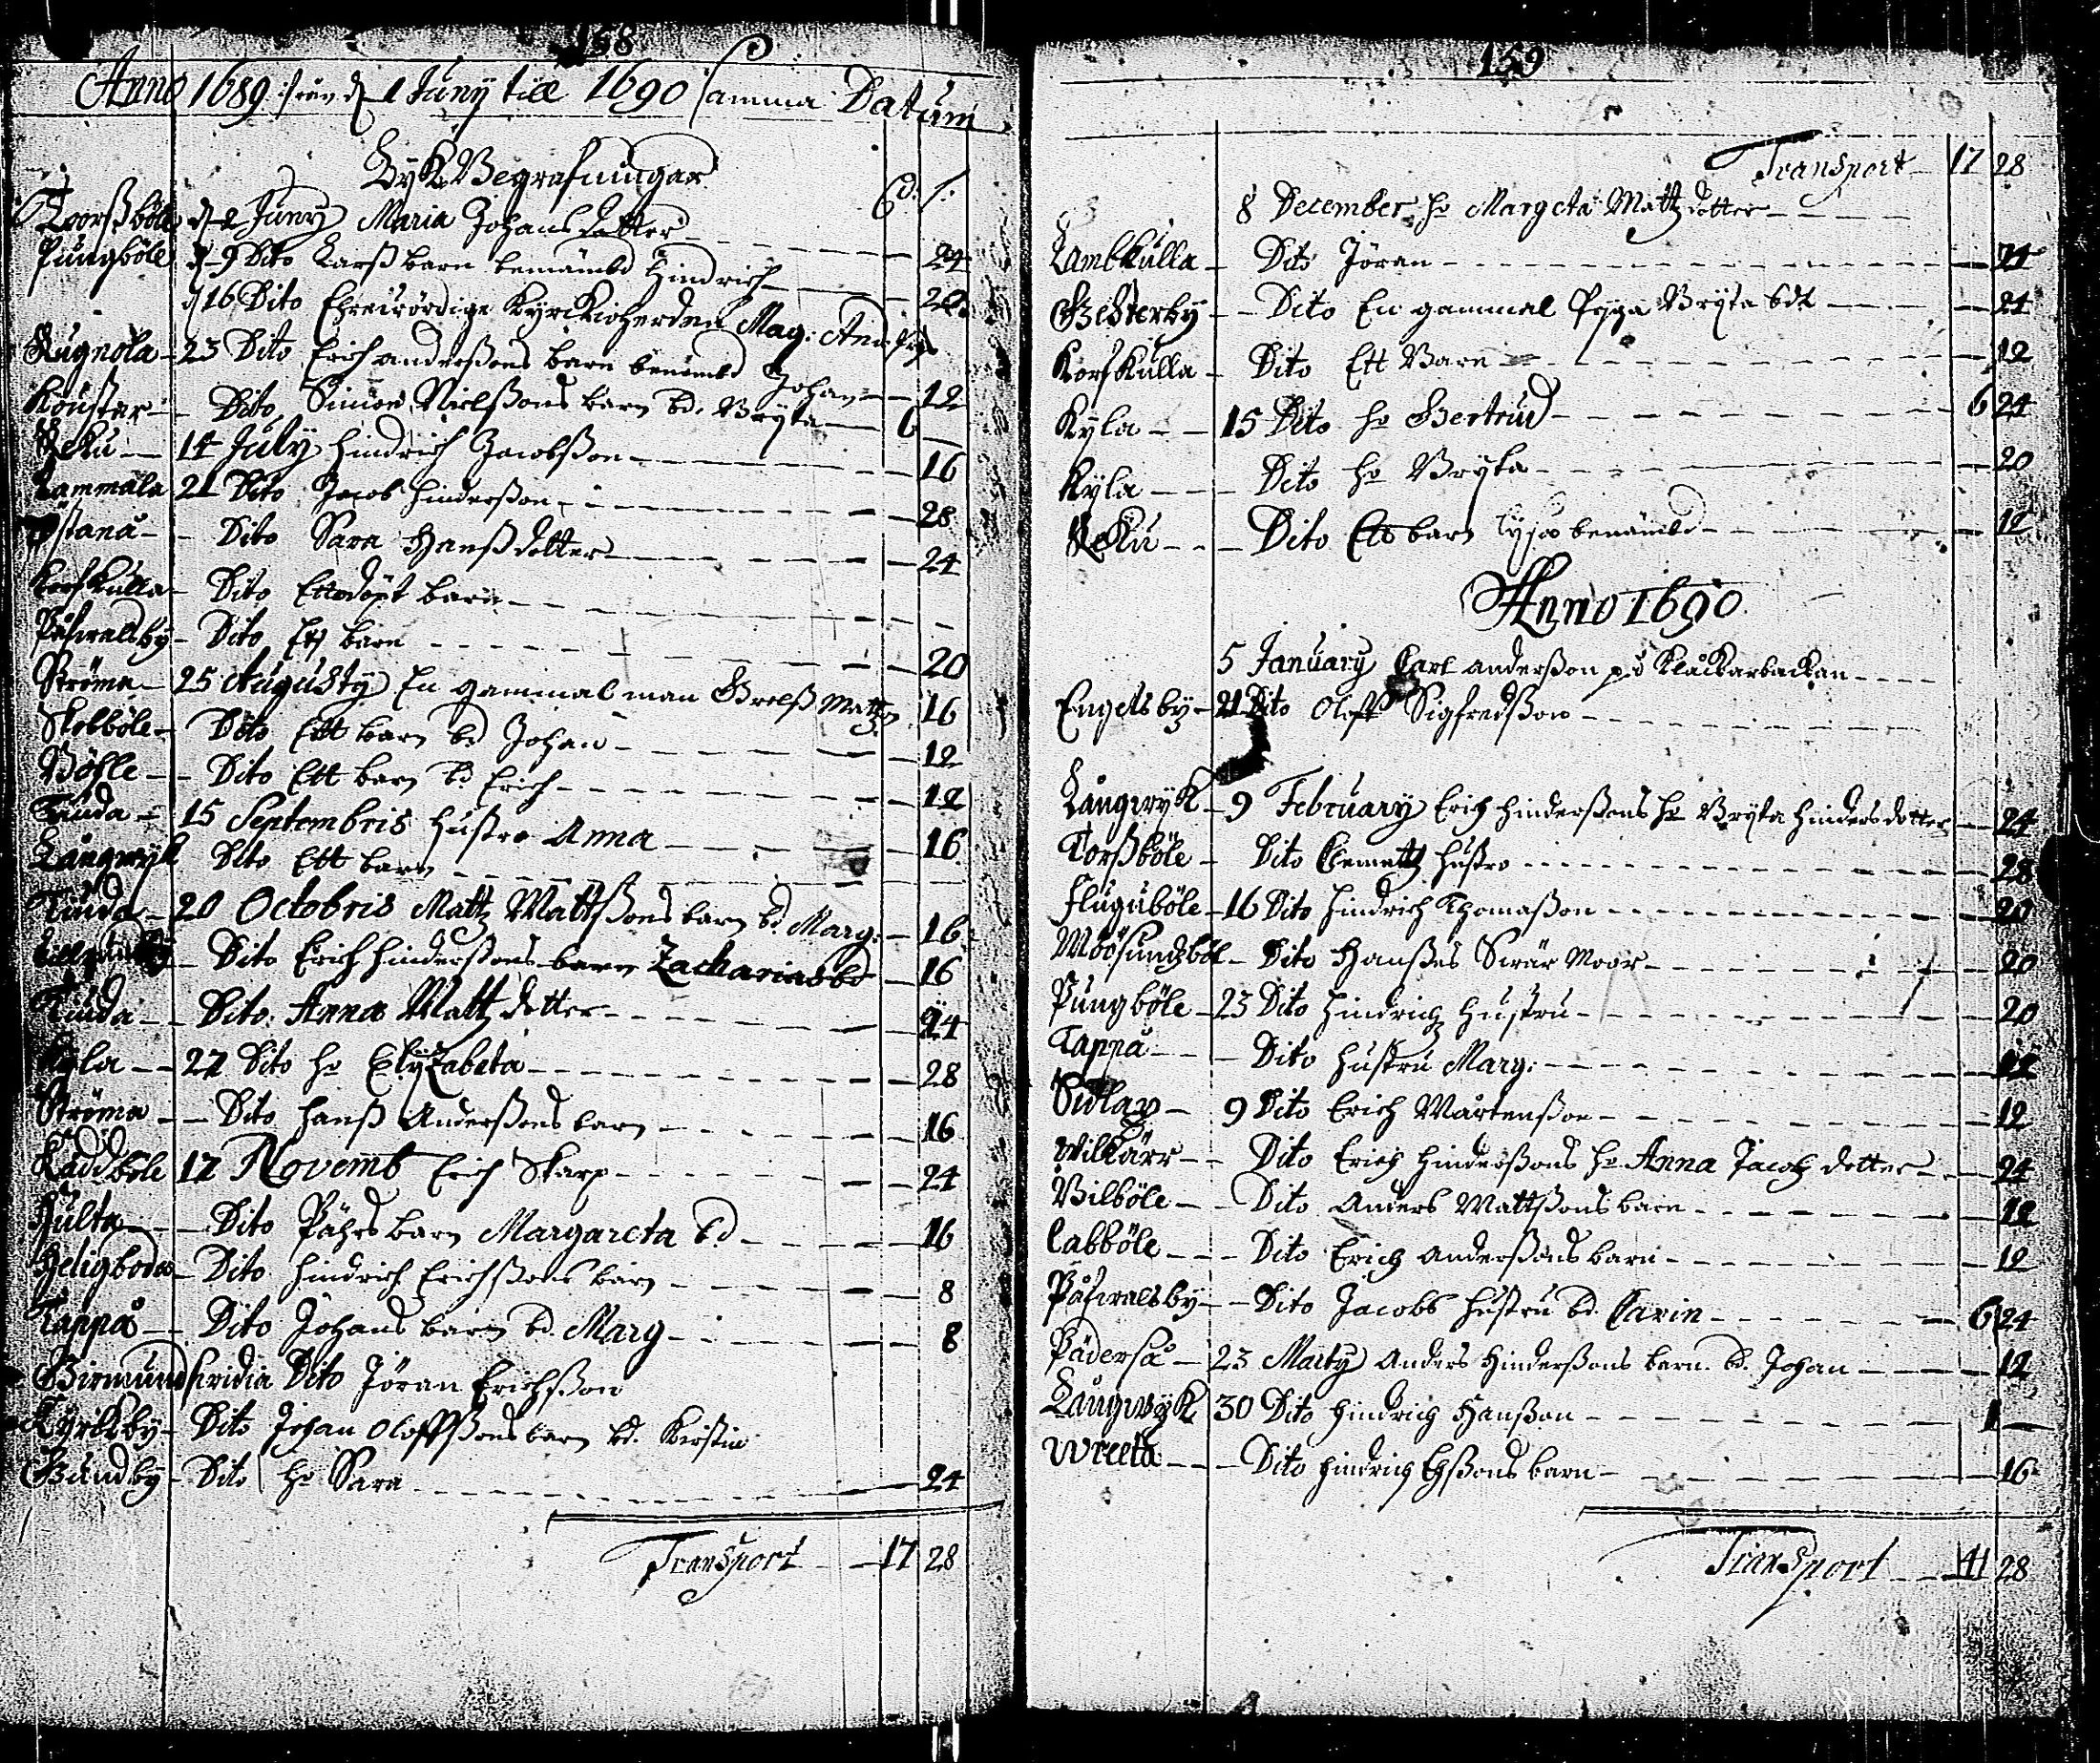 158
Anno 1689 från d 1 Juny till 1690 samma Datum
Lyk Begrafningar
d. /.
Torßböle d 2 Juny Maria Johansdotter 6 24
Pungböle d 9 Dito Larß barn benämbd Hindrich 20
d 16 Dito Ehrewördige Kyrckioherden Mag: And:
Rugnola 23 Dito Erich anderßons barn benämbd Johan 12
Koustar Dito Simon Nielßons barn bd. Bryta 6
Reku 14 July Hindrich Jacobßon 16
Lammala 21 Dito Jacob Hinderßon 28
Östanå Dito Sara Hanßdotter 24
Korskulla Dito Ett odöpt barn
Påfwalsby Dito Ett barn 20
Ströma 25 Augusty En gammal man Grelß Mattz 16
Skobböle Dito Ett barn bd Johan 12
Böhle Dito Ett barn bd Erich 12
Tuuda 15 Septembris Hustro Anna 16
Långwyk Dito Ett barn
Tuuda 20 Octobris Mattz Mattßons barn bd. Marg: 16
Dito Erich Hinderßons barn Zacharias bd 16
Tuuda Dito Anna Mattzdotter 24
Kyla 27 Dito Ho Elyzabeta 28
Ströma Dito Hanß Anderßons barn 16
Räddböle 17 Novemb Erich Skarp 24
Hulta Dito Påhrs barn Margareta bd 16
Heligboda Dito Hindrich Erichßons barn 8
Tappå Dito Johans barn bd. Marg 8
Dito Jöran Erichßon
Kyrkby Dito Johan Oloffßons barn bd. Kirstin
Gundby Dito Ho Sara 24
Transport 17 28
159
Transport 17 28
8 December Ho Margeta Mattzdotter
Lambkulla Dito Jöran 24
Gesterby Dito En gammal Pyga Bryta bdt 24
Korskulla Dito Ett Barn 12
Kyla 15 Dito Ho Gertrud 6 24
Kyla Dito Ho Bryta 20
Reku Dito Ett barn Lysa benämbd 12
Anno 1690
5 January Carl anderßon på Klåckarbackan
Engelsby 21 Dito Oloff Sigfredßon
Långwyk 9 February Erich Hinderßons Ho Bryta Hindersdotter 24
Torßböle Dito Clemetz Hustro 28
Fluguböle 16 Dito Hindrich Thomaßon 20
Moösundzböl Dito Hanßes Swär Moor 20
Pungböle 23 Dito Hindrichz Hustru 20
Tappå Dito Hustru Marg: 12
Sidlax 9 Dito Erich Mårtenßon 12
Wilkärr Dito Erich Hinderßons Ho Anna Jacobz dotter 24
Bilböle Dito Anders Mattßons barn 12
Labböle Dito Erich Anderßons barn 12
Påfwalsby Dito Jacobs Hustru bd. Carin 6 24
Päderså 23 Marty Anders Hinderßons barn bd. Johan 12
Långwyk 30 Dito Hindrich Hanßon 1
Wreeta Dito Hindrich Ehßons barn 16
Transport 41 28